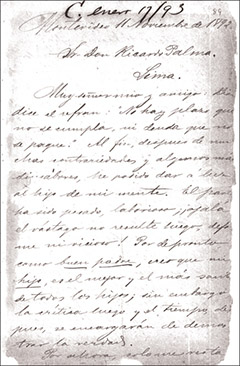 C enero 17/93
89
Montevideo 11 Noviembre de 1892
Sr. Don Ricardo Palma.
Lima.
Muy señor mio y amigo: Me
dice el refran: "No hay plazo que
no se cumpla, ni deuda que no
se pague." Al fin, despues de mu
chas contrariedades y algunos mas
sinsabores, he podido dar a luz
al hijo de mi mente. El parto
ha sido pesado, laborioso; ¡ojalá
el vástago no resulte luego, defor
me ni vicioso! Por de pronto
como buen padre, creo que mi
hijo, es el mejor y el más sano
de todos los hijos; sin embargo
la crítica luego y el tiempo des
pues, se encargarán de demos
trar la verdad.
Por ahora solo me resta